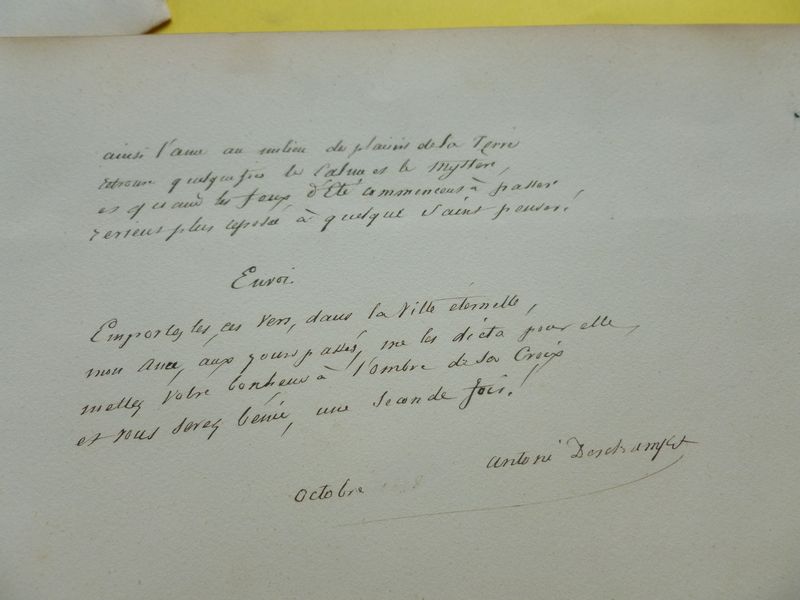 ainsi l'ame au milieu de plaisirs de la Terre
retrouve quelquefois le Calme et le Mystere,
et quand les feux d'Eté commencent à passer
revient plus reposée à quelque Saint penser!
Envoi.
Emportez les, ces Vers, dans la Ville éternelle,
mon Ame, aux jours passés, me les dicta pour elle,
mettez Votre bonheur à l'ombre de Sa Croix
et vous serez bénie, une Seconde fois!
Antoni Deschamps
Octobre